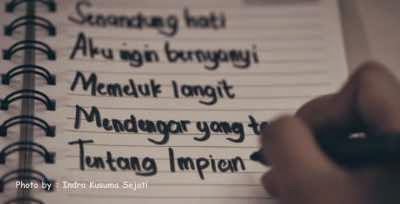 Senandung hati
Aku ingin bernyanyi
Memeluk langit
Mendengar yang
Tentang Impian
Photo by : Indra Kusuma Sejati